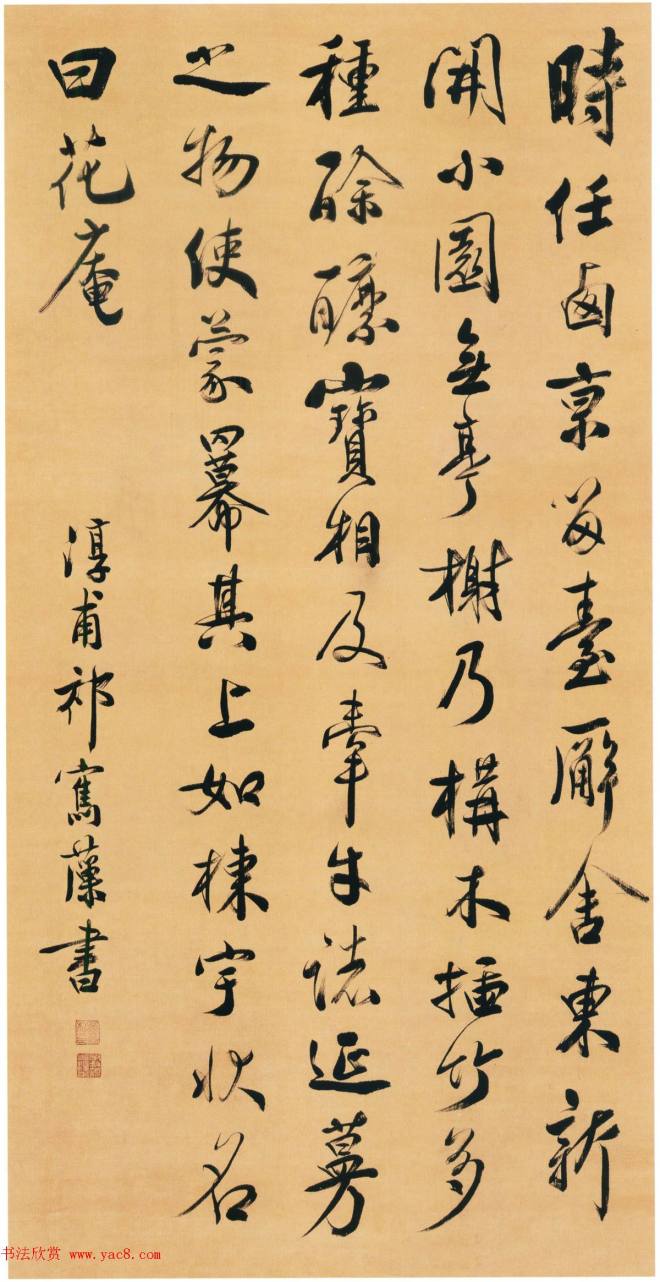 時任西京留臺廨舍東新
開小園無亭榭乃構木插竹多
種酴醿寶相及牽牛諸延蔓
之物使蒙羃其上如棟宇狀名
曰花庵
淳甫祁寯藻書
书法欣赏 www.yac8.com